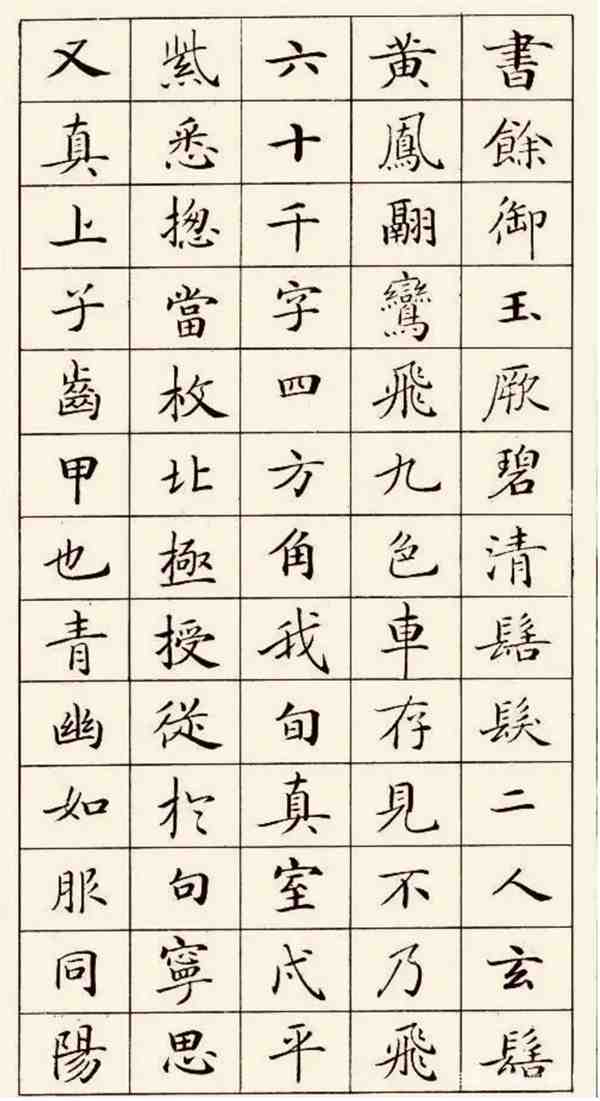 書餘御玉厥碧清髻髮二人玄髻
黃鳳翮鸞飛九色車存見不乃飛
六十千字四方角我旬真室代平
紫悉揔當枚北極授從於句寧思
又真上子齒甲也青幽如服同陽